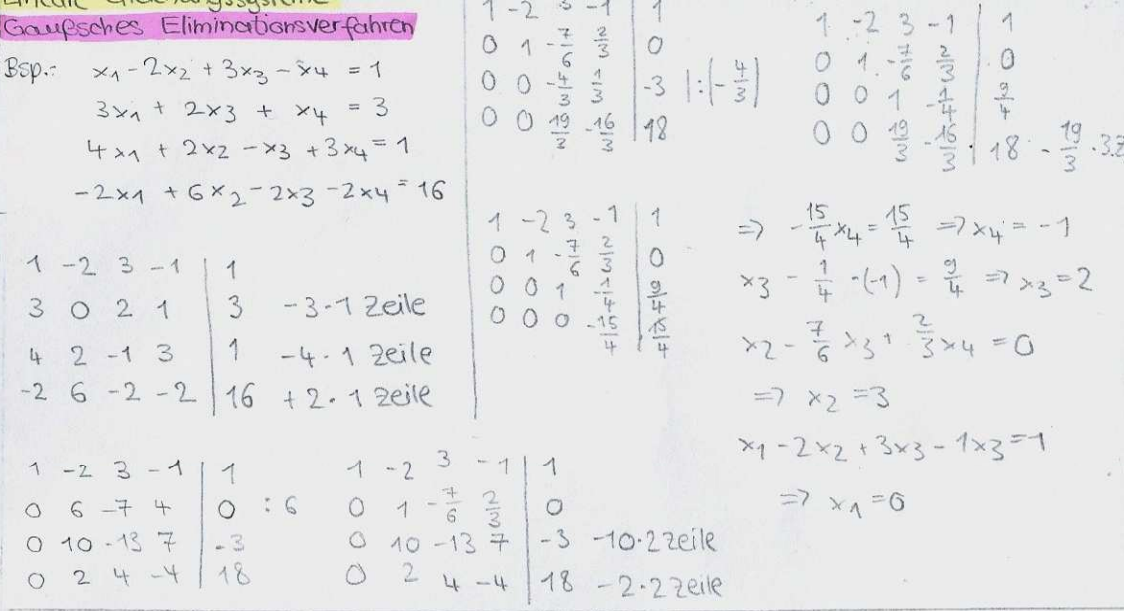 Gaußsches Eliminationsverfahren
Bsp.: x1 - 2x2 + 3x3 - x4 = 1
3x1 + 2x3 + x4 = 3
4x1 + 2x2 - x3 + 3x4 = 1
-2x1 + 6x2 - 2x3 - 2x4 = 16
1 -2 3 -1 | 1
3 0 2 1 | 3 -3·1 Zeile
4 2 -1 3 | 1 -4·1 Zeile
-2 6 -2 -2 | 16 +2·1 Zeile
1 -2 3 -1 | 1
0 6 -7 4 | 0 :6
0 10 -13 7 | -3
0 2 4 -4 | 18
1 -2 3 -1 | 1
0 1 -7/6 2/3 | 0
0 10 -13 7 | -3 -10·2 Zeile
0 2 4 -4 | 18 -2·2 Zeile
1 -2 3 -1 | 1
0 1 -7/6 2/3 | 0
0 0 -4/3 1/3 | -3 |:(-4/3)
0 0 19/3 -16/3 | 18
1 -2 3 -1 | 1
0 1 -7/6 2/3 | 0
0 0 1 -1/4 | 9/4
0 0 19/3 -16/3 | 18 - 19/3 · 3.Z
1 -2 3 -1 | 1
0 1 -7/6 2/3 | 0
0 0 1 -1/4 | 9/4
0 0 0 -15/4 | 15/4
=> -15/4 x4 = 15/4 => x4 = -1
x3 - 1/4 ·(-1) = 9/4 => x3 = 2
x2 - 7/6 x3 + 2/3 x4 = 0
=> x2 = 3
x1 - 2x2 + 3x3 - 1x3 = 1
=> x1 = 0